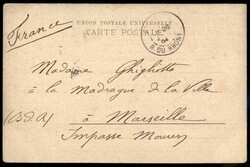 France
UNION POSTALE UNIVERSELLE
CARTE POSTALE
B. DU RHONE
Madame Ghighotte
à la Madrague de la Ville
(B.d.R) à Marseille
Impasse